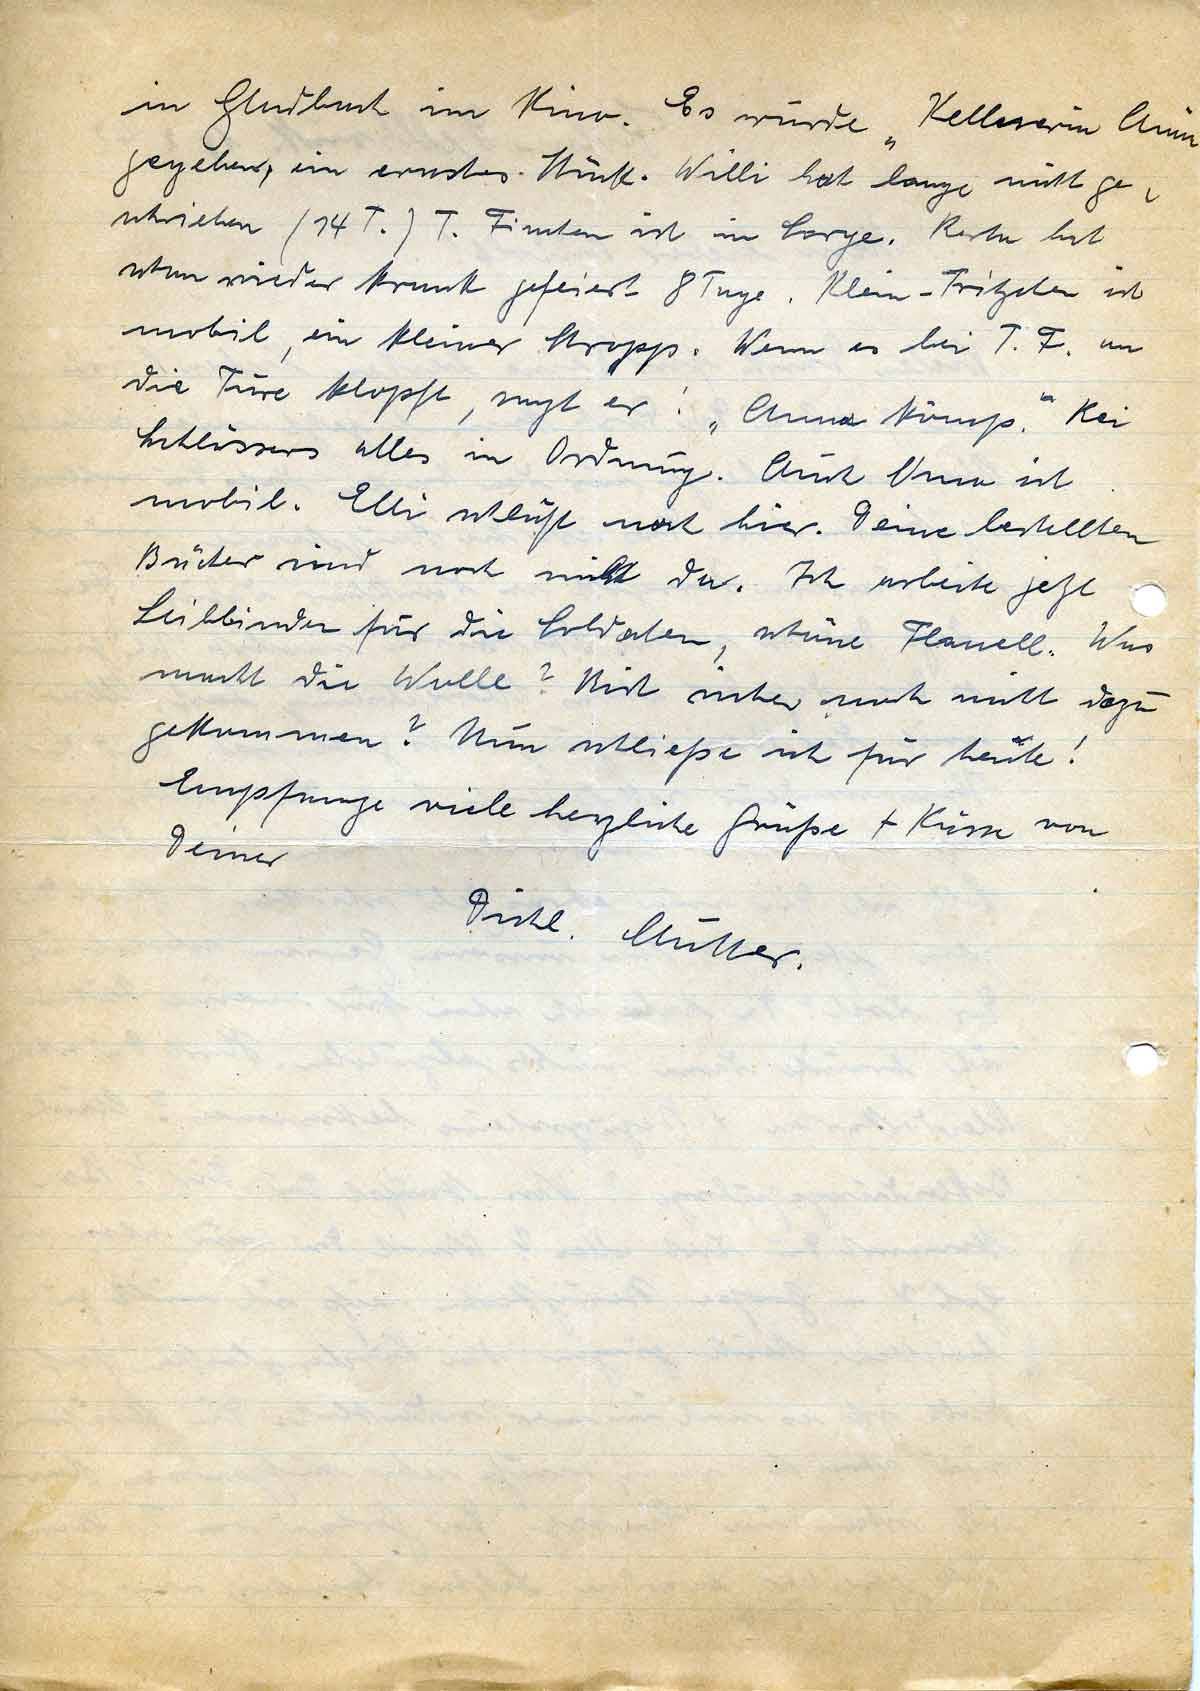 in Gladbach im Kino. Es wurde „Kellnerin Anna
gegeben, ein ernstes Stück. Willi hat lange nicht ge-
schrieben (14 T.) T. Finchen ist in Sorge. Karla hat
schon wieder krank gefeiert 8 Tage. Klein-Fritzchen ist
mobil, ein kleiner Stropp. Wenn es bei T. F. an
die Türe klopft, sagt er: „Anna komps." Bei
Schlössers alles in Ordnung. Auch Oma ist
mobil. Elli schläft noch hier. Deine bestellten
Bücher sind noch nicht da. Ich arbeite jetzt
Leibbinden für die Soldaten, schöne Flanell. Was
macht die Wolle? Bist sicher noch nicht dazu
gekommen? Nun schließe ich für heute!
Empfange viele herzliche Grüße + Küsse von
Deiner
Dichl. Mutter.